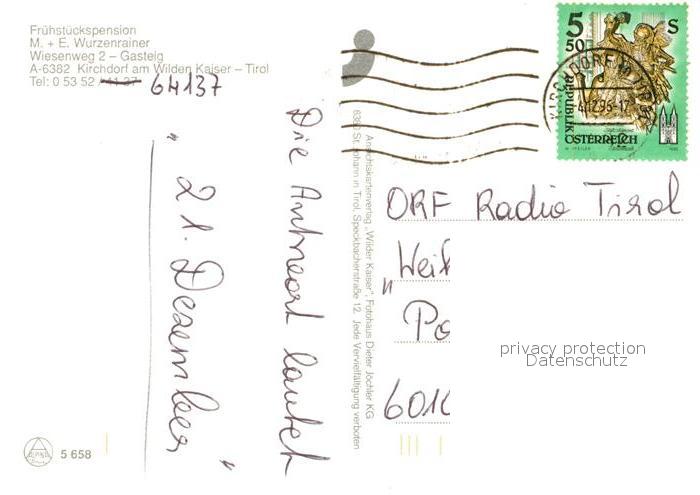 Frühstückspension
M. + E. Wurzenrainer
Wiesenweg 2 – Gasteig
A-6382 Kirchdorf am Wilden Kaiser – Tirol
Tel: 0 53 52 / 64137
Die Antwort lautet
"21. Dezember"
5 658
Ansichtskartenverlag „Wilder Kaiser", Fotohaus Dieter Jöchler KG
6380 St. Johann in Tirol, Speckbacherstraße 12. Jede Vervielfältigung verboten
5 50 S
REPUBLIK
ÖSTERREICH
ORF Radio Tirol
"Wei
Po
601
privacy protection
Datenschutz